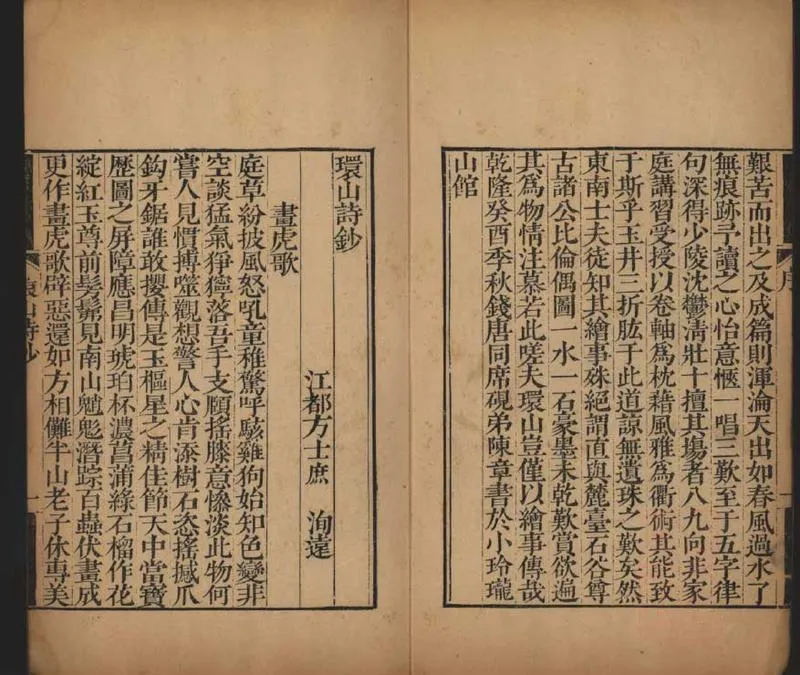 艱苦而出之及成篇則渾淪天出如春風過水了
無痕跡予讀之心怡意愜一唱三歎至于五字律
句深得少陵沈鬱淸壯十擅其塲者八九向非家
庭講習受授以卷軸爲枕藉風雅爲衢術其能致
于斯乎玉井三折肱于此道諒無遺珠之歎矣然
東南士夫徒知其繪事殊絕謂直與麓臺石谷尊
古諸公比倫偶圖一水一石豪墨未乾歎賞欲遍
其爲物情注慕若此嗟夫環山豈僅以繪事傳哉
乾隆癸酉季秋錢唐同席硯弟陳章書於小玲瓏
山館
序
環山詩鈔
江都方士庶 洵遠
畫虎歌
庭草紛披風怒吼童稚驚呼駭雞狗始知色變非
空談猛氣猙獰落吾手支頤搖膝意慘淡此物何
嘗人見慣搏噬觀想警人心肯添樹石恣搖撼爪
鈎牙鋸誰敢攖傳是玉樞星之精佳節天中當寶
歷圖之屏障應昌明琥珀杯濃菖蒲綠石榴作花
綻紅玉尊前髣髴見南山魑魅潛踪百蟲伏畫成
更作畫虎歌辟惡還如方相儺半山老子休專美
環山詩鈔
一